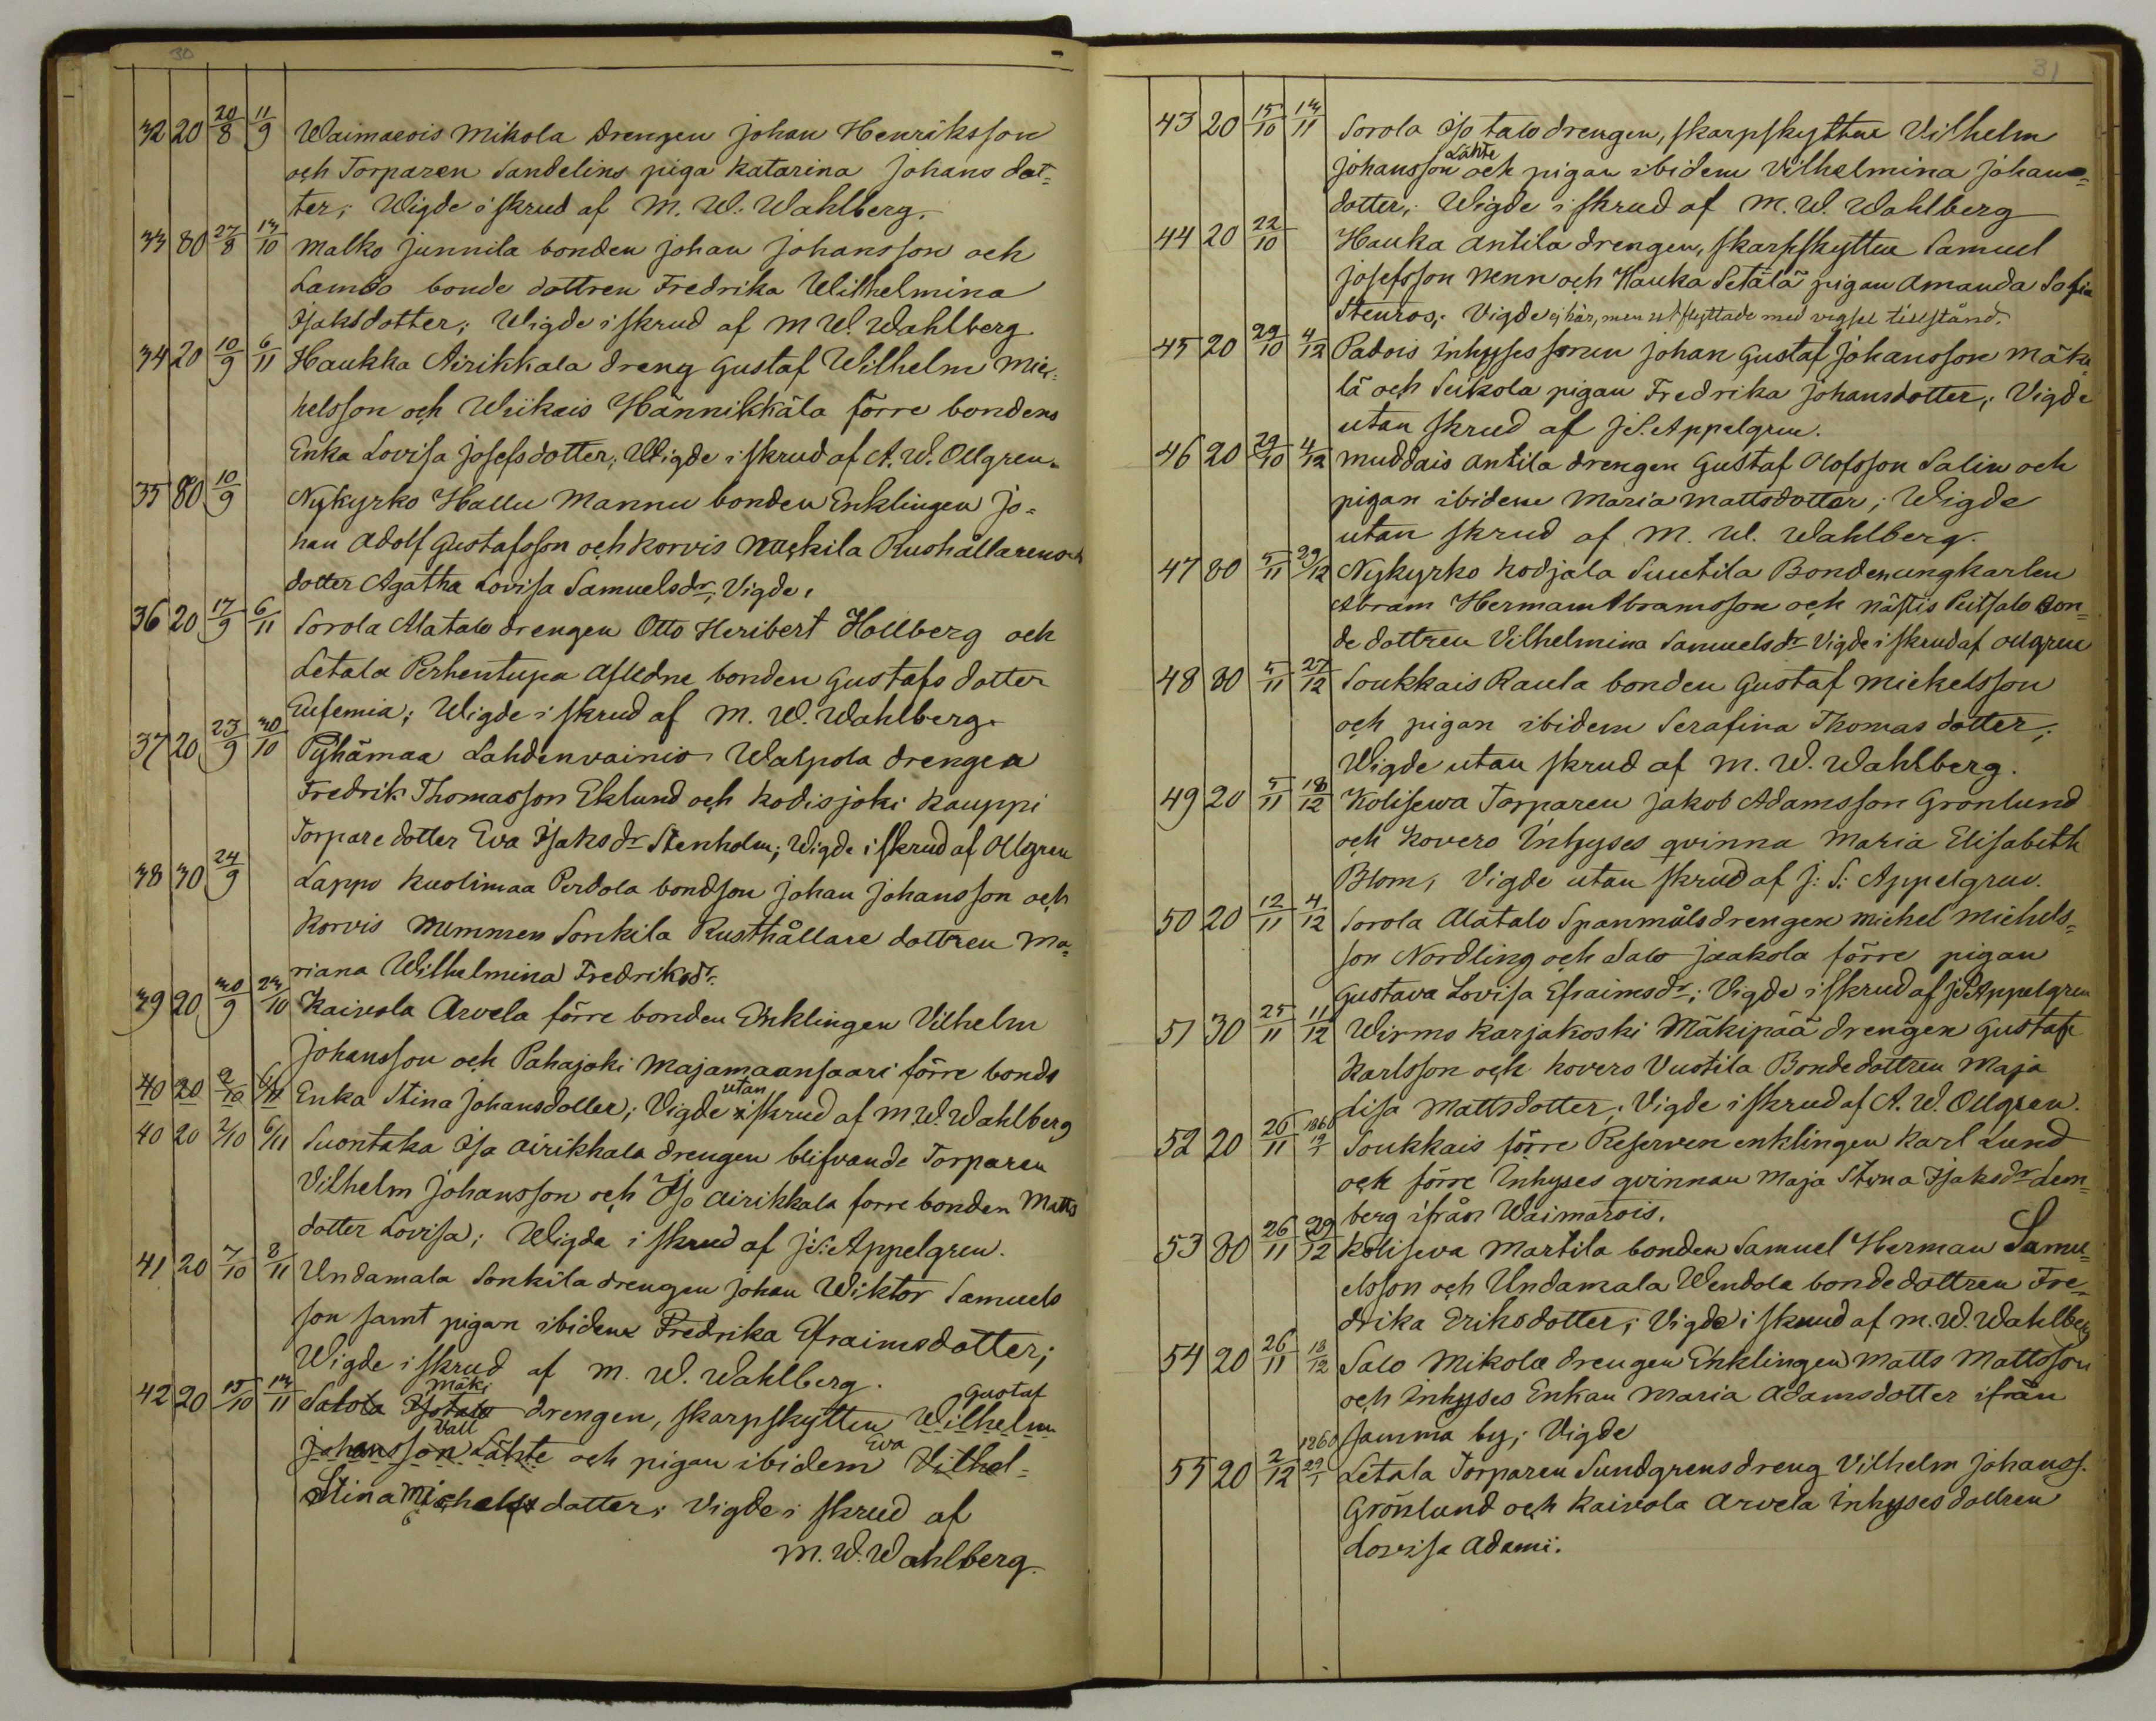 30
32 20 20/8 11/9 Waimarois Mikola drengen Johan Henriksson
och Torparen Sandelins piga Katarina Johans dot=
ter; Wigde i skrud af M. W. Wahlberg.
33 80 27/8 13/10 Malko Junnila bonden Johan Johansson och
Lambo bonde dottren Fredrika Wilhelmina
Isaksdotter; Wigde i skrud af M W. Wahlberg
34 20 10/9 6/11 Haukka Airikkala dreng Gustaf Wilhelm Mic=
helsson och Wiikais Hännikkäla förre bondens
Enka Lovisa Josefsdotter; Wigde i skrud af A. W. Ollgren.
35 80 10/9 Nykyrko Hallu Mannu bonden Enklingen Jo=
han Adolf Gustafsson och Korvis Rushållarens
dotter Agatha Lovisa Samuelsdr; Vigde.
36 20 17/9 6/11 Sorola Alatalo drengen Otto Heribert Hollberg och
Letala Perhentupa Aflidne bonden Gustafs dotter
Eufemia; Wigde i skrud af M. W. Wahlberg.
37 20 23/9 30/10 Pyhämaa Lahdenvainio Walpola drengen
Fredrik Thomasson Eklund och Kodisjoki Kauppi
Torpare dotter Eva Isaksdr Stenholm; Wigde i skrud af Ollgren
38 30 24/9 Lappo Kuolimaa Perdola bondson Johan Johansson och
Korvis Nummen Sonkila Rusthållare dottren Ma=
riana Wilhelmina Fredriksdr.
39 20 30/9 23/10 Kaivola Arvela förre bonden Enklingen Vilhelm
Johansson och Pahajoki Majamaansaari förre bonds
40 20 2/10 6/11 Enka Stina Johansdotter; Vigde utan i skrud af M. W. Wahlberg
40 20 2/10 6/11 Suontaka Iso Airikkala drengen blifvande Torparen
Vilhelm Johansson och Iso Airikkala forre bonden Matts
dotter Lovisa; Wigde i skrud af J. S. Appelgren.
41 20 7/10 8/11 Undamala Sonkila drengen Johan Wiktor Samuels
son samt pigan ibidem Fredrika Efraimsdotter;
Wigde i skrud af M. W. Wahlberg.
Mäki Gustaf
42 20 15/10 13/11 Salola Isotalo drengen, skarpskytten Wilhelm
Vall Eva
Johansson Lähte och pigan ibidem Vilhel=
Stina Michelsdotter; Vigde i skrud af
M. W. Wahlberg.
31
43 20 15/10 13/11 Sorola Iso talo drengen, skarpskytten Vilhelm
Lähte
Johansson och pigan ibidem Vilhelmina Johans=
dotter; Wigde i skrud af M. W. Wahlberg
44 20 22/10 Hauka Antila drengen, skarpskytten Samuel
Josefsson Menn och Hauka Setälä pigan Amanda Sofia
Stenros; Vigde ej här, men utflyttade med vigsel tillstånd.
45 20 29/10 4/12 Padois Inhyses sonen Johan Gustaf Johansson Mäke
lä och Seikola pigan Fredrika Johansdotter; Vigde
utan skrud af J. S. Appelgren.
46 20 29/10 4/12 Muddais Antila drengen Gustaf Olofsson Salin och
pigan ibidem Maria Mattsdotter; Wigde
utan skrud af M. W. Wahlberg.
47 80 5/11 29/12 Nykyrko Kodjala Suutila Bonden ungkarlen
Abram Herman Abramsson och Nästis Peitsalo Bon=
de dottren Vilhelmina Samuelsdr Vigde i skrud af Ollgren
48 80 5/11 27/12 Soukkais Raula bonden Gustaf Mickelsson
och pigan ibidem Serafina Thomas dotter;
Wigde utan skrud af M. W. Wahlberg.
49 20 5/11 18/12 Kolisewa Torparen Jakob Adamsson Grönlund
och Kovero Inhyses qvinna Maria Elisabeth
Blom; Vigde utan skrud af J: S: Appelgren.
50 20 12/11 4/12 Sorola Alatalo Spanmålsdrengen Michel Michels=
son Nordling och Salo Jaakola förre pigan
Gustava Lovisa Efraimsdr; Vigde i skrud af J. S. Appelgren
51 30 25/11 11/12 Wirmo Karjakoski Mäkipää drengen Gustaf
Karlsson och Kovero Vustila Bondedottren Maja
Lisa Mattsdotter; Vigde i skrud af A. W. Ollgren.
1860
52 20 26/11 19/1 Soukkais förre Reserven enklingen Karl Lund
och förre Inhyses qvinnan Maja Stina Isaksdr Lem=
berg ifrån Waimarois.
53 80 26/11 29/12 Kolisewa Martila bonden Samuel Herman Samu=
elsson och Undamala Wendola bondedottren Fre=
drika Eriksdotter; Vigde i skrud af M. W. Wahlberg
54 20 26/11 18/12 Salo Mikola drengen Enklingen Matts Mattsson
och Inhyses Enkan Maria Adamsdotter ifrån
samma by; Vigde
1860
55 20 2/12 29/1 Letala Torparen Sundgrens dreng Vilhelm Johanss.
Grönlund och Kaivola Arvela Inhysesdottren
Lovisa Adami.